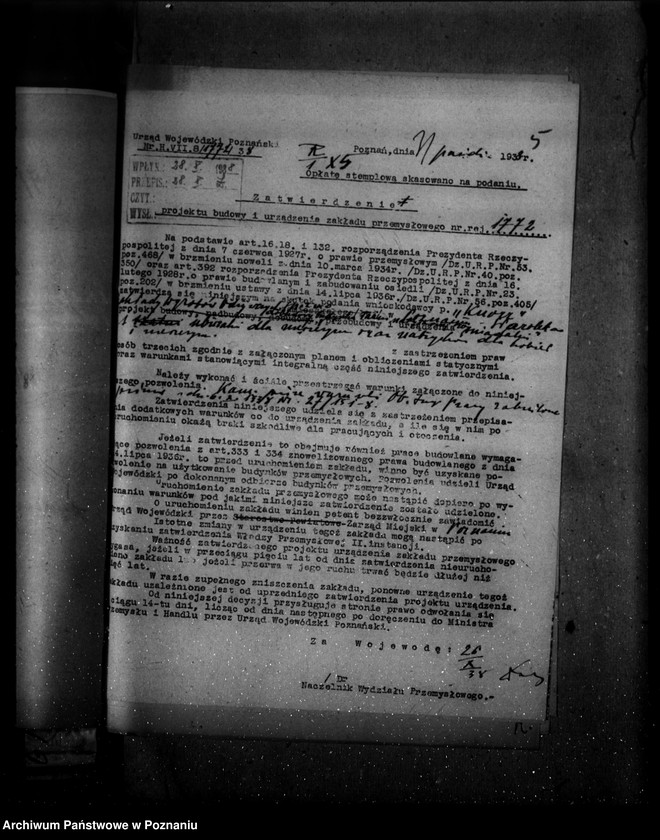 5
Urząd Wojewódzki Poznański
Nr.H.VII.8/1772/38
Poznań, dnia 193 r.
Opłatę stemplową skasowano na podaniu.
WPŁYN.: 28. X 1938
PRZEPIS.: 28. X
CZYT.:
WYSŁ.
Zatwierdzenie
projektu budowy i urządzenia zakładu przemysłowego nr.rej. 1772
Na podstawie art.16.18. i 132. rozporządzenia Prezydenta Rzeczy-
pospolitej z dnia 7 czerwca 1927r. o prawie przemysłowym /Dz.U.R.P.Nr.53.
poz.468/ w brzmieniu noweli z dnia 10.marca 1934r. /Dz.U.R.P.Nr.40.poz.
350/ oraz art.392 rozporządzenia Prezydenta Rzeczypospolitej z dnia 16.
lutego 1928r. o prawie budowlanym i zabudowaniu osiedli /Dz.U.R.P.Nr.23.
poz.202/ w brzmieniu ustawy z dnia 14.lipca 1936r./Dz.U.R.P.Nr.56.poz.405/
zatwierdza się niniejszym na skutek podania wnioskodawcy p.
projekt budowy, nadbudowy przebudowy i urządzenia
dla oraz dla kobiet
i
z zastrzeżeniem praw
osób trzecich zgodnie z załączonym planem i obliczeniami statycznymi
oraz warunkami stanowiącymi integralną część niniejszego zatwierdzenia.
Należy wykonać i ściśle przestrzegać warunki załączone do niniej-
szego pozwolenia.
Zatwierdzenia niniejszego udziela się z zastrzeżeniem przepisa-
nia dodatkowych warunków co do urządzenia zakładu, o ile się w nim po
uruchomieniu okażą braki szkodliwe dla pracujących i otoczenia.
Jeżeli zatwierdzenie to obejmuje również prace budowlane wymaga-
jące pozwolenia z art.333 i 334 znowelizowanego prawa budowlanego z dnia
14.lipca 1936r. to przed uruchomieniem zakładu, winno być uzyskane po-
zwolenie na użytkowanie budynków przemysłowych. Pozwolenia udzieli Urząd
Wojewódzki po dokonanym odbiorze budynków przemysłowych.
Uruchomienie zakładu przemysłowego może nastąpić dopiero po wy-
konaniu warunków pod jakimi niniejsze zatwierdzenie zostało udzielone.
O uruchomieniu zakładu winien petent bezzwłocznie zawiadomić
Urząd Wojewódzki przez Starostwo Powiatowe-Zarząd Miejski w Poznaniu
Istotne zmiany w urządzeniu tegoż zakładu mogą nastąpić po
uzyskaniu zatwierdzenia Władzy Przemysłowej II.instancji.
Ważność zatwierdzonego projektu urządzenia zakładu przemysłowego
wygasa, jeżeli w przeciągu pięciu lat od dnia zatwierdzenia nieurucho-
miono zakładu lub jeżeli przerwa w jego ruchu trwać będzie dłużej niż
pięć lat.
W razie zupełnego zniszczenia zakładu, ponowne urządzenie tegoż
zakładu uzależnione jest od uprzedniego zatwierdzenia projektu urządzenia.
Od niniejszej decyzji przysługuje stronie prawo odwołania się
w ciągu 14-tu dni, licząc od dnia następnego po doręczeniu do Ministra
Przemysłu i Handlu przez Urząd Wojewódzki Poznański.
Za Wojewodę:
28
X
38
/ Dr
Naczelnik Wydziału Przemysłowego.-
Archiwum Państwowe w Poznaniu